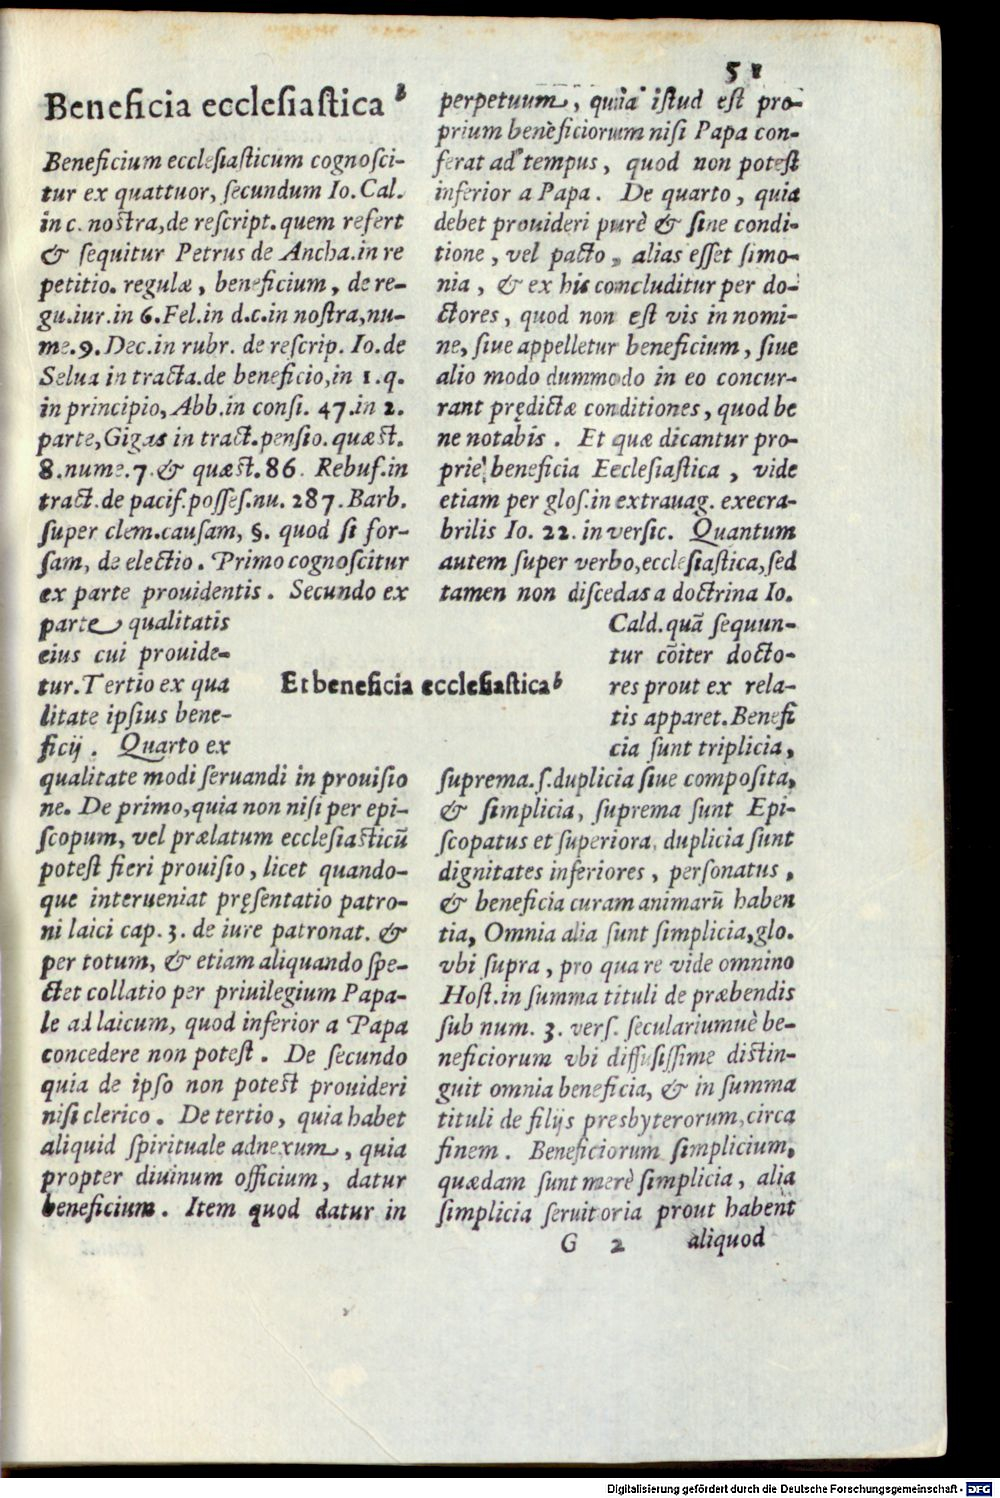 51
Beneficia ecclesiastica b
Beneficium ecclesiasticum cognosci-
tur ex quattuor, secundum Io. Cal.
in c. nostra, de rescript. quem refert
& sequitur Petrus de Ancha. in re
petitio. regulæ, beneficium, de re-
gu.iur.in 6. Fel.in d.c.in nostra, nu-
me.9. Dec.in rubr. de rescrip. Io. de
Selua in tracta.de beneficio, in 1.q.
in principio, Abb.in consi. 47.in 2.
parte, Gigas in tract.pensio. quæst.
8.nume.7.& quæst.86. Rebuf.in
tract.de pacif.posses.nu. 287. Barb.
super clem.causam, §. quod si for-
sam, de electio. Primo cognoscitur
ex parte prouidentis. Secundo ex
parte qualitatis
eius cui prouide-
tur. Tertio ex qua
litate ipsius bene-
ficij. Quarto ex
qualitate modi seruandi in prouisio
ne. De primo, quia non nisi per epi-
scopum, vel prælatum ecclesiasticū
potest fieri prouisio, licet quando-
que interueniat pręsentatio patro-
ni laici cap. 3. de iure patronat. &
per totum, & etiam aliquando spe-
ctet collatio per priuilegium Papa-
le ad laicum, quod inferior a Papa
concedere non potest. De secundo
quia de ipso non potest prouideri
nisi clerico. De tertio, quia habet
aliquid spirituale adnexum, quia
propter diuinum officium, datur
beneficium. Item quod datur in
Et beneficia ecclesiastica b
perpetuum, quia istud est pro-
prium beneficiorum nisi Papa con-
ferat ad tempus, quod non potest
inferior a Papa. De quarto, quia
debet prouideri purè & sine condi-
tione, vel pacto, alias esset simo-
nia, & ex his concluditur per do-
ctores, quod non est vis in nomi-
ne, siue appelletur beneficium, siue
alio modo dummodo in eo concur-
rant prędictæ conditiones, quod be
ne notabis. Et quæ dicantur pro-
prie beneficia Ecclesiastica, vide
etiam per glos.in extrauag. execra-
brilis Io. 22. in versic. Quantum
autem super verbo, ecclesiastica, sed
tamen non discedas a doctrina Io.
Cald. quā sequun-
tur cōiter docto-
res prout ex rela-
tis apparet. Benefi
cia sunt triplicia,
suprema.s.duplicia siue composita,
& simplicia, suprema sunt Epi-
scopatus et superiora, duplicia sunt
dignitates inferiores, personatus,
& beneficia curam animarū haben
tia, Omnia alia sunt simplicia, glo.
vbi supra, pro qua re vide omnino
Host.in summa tituli de præbendis
sub num. 3. vers. seculariumuè be-
neficiorum vbi diffusissime distin-
guit omnia beneficia, & in summa
tituli de filijs presbyterorum, circa
finem. Beneficiorum simplicium,
quædam sunt merè simplicia, alia
simplicia seruitoria prout habent
G 2 aliquod
Digitalisierung gefördert durch die Deutsche Forschungsgemeinschaft - DFG